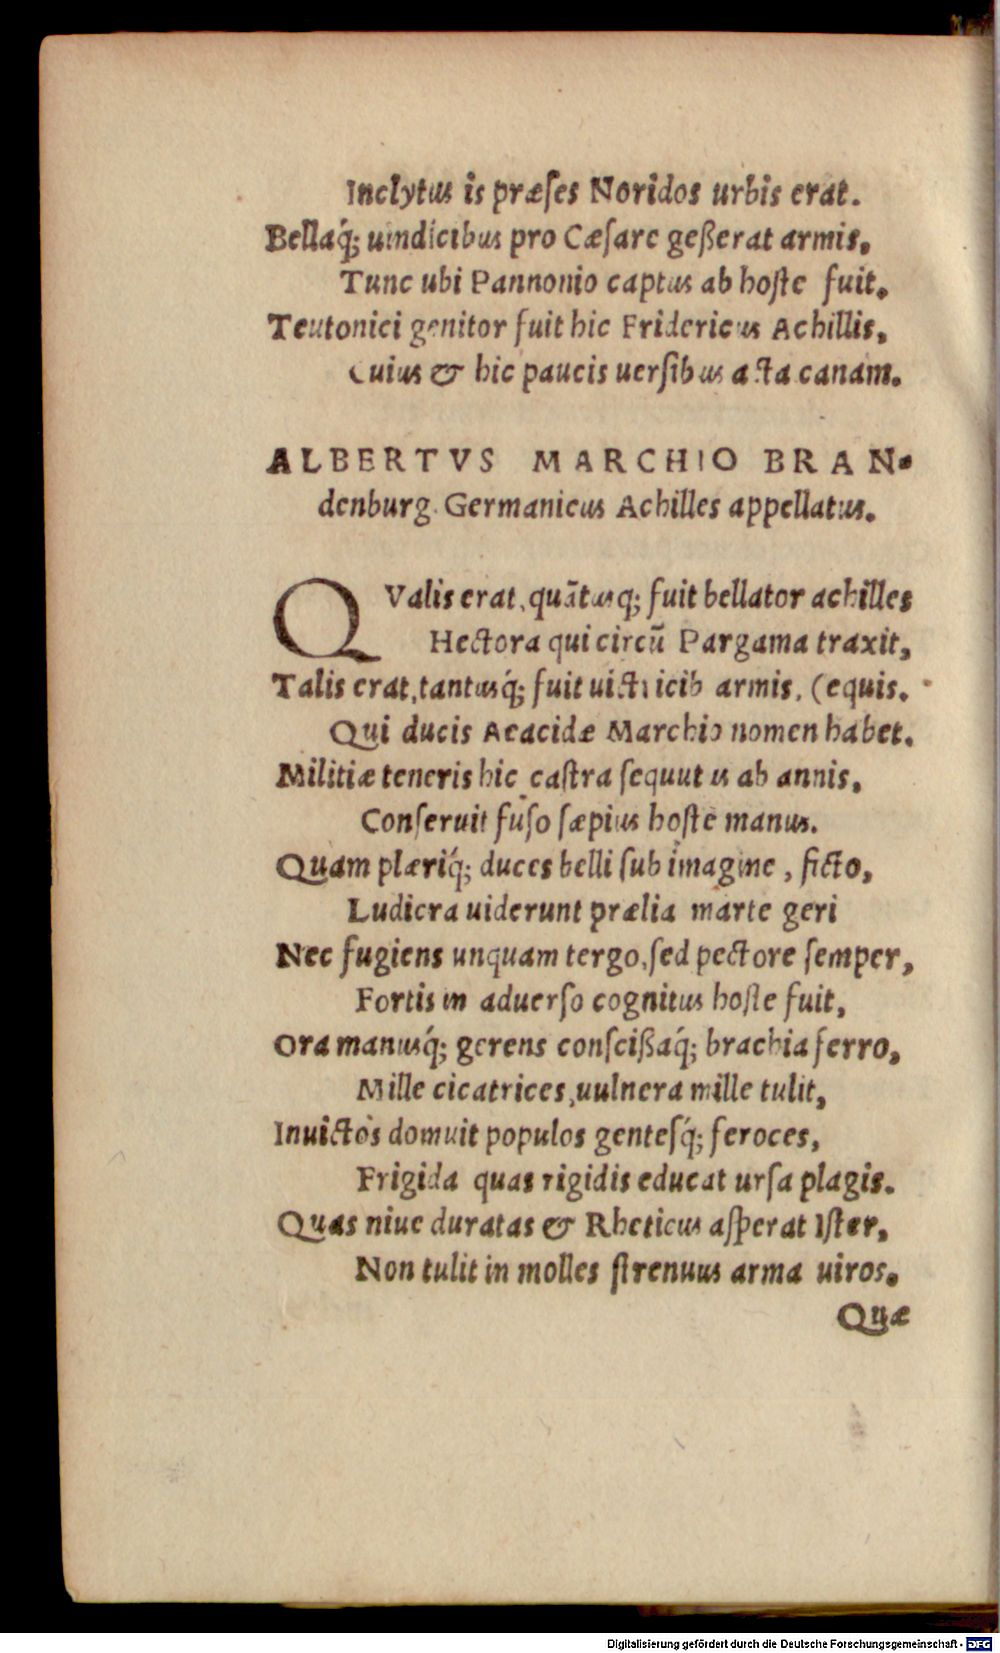 Inclytus is præſes Noridos urbis erat.
Bellaq́; uindicibus pro Cæſare geßerat armis,
Tunc ubi Pannonio captus ab hoſte fuit.
Teutonici genitor fuit hic Fridericus Achillis,
Cuius & hic paucis uerſibus acta canam.
ALBERTVS MARCHIO BRAN-
denburg. Germanicus Achilles appellatus.
QValis erat, quātusq; fuit bellator achilles
Hectora qui circū Pargama traxit,
Talis erat, tantusq́; fuit uictricib armis, (equis.
Qui ducis Aeacidæ Marchio nomen habet.
Militiæ teneris hic caſtra ſequutus ab annis,
Conſeruit fuſo ſæpius hoſte manus.
Quam plæriq́; duces belli ſub imagine, ficto,
Ludicra uiderunt prælia marte geri
Nec fugiens unquam tergo, ſed pectore ſemper,
Fortis in aduerſo cognitus hoſte fuit,
Ora manusq́; gerens conſcißaq́; brachia ferro,
Mille cicatrices, uulnera mille tulit,
Inuictos domuit populos gentesq́; feroces,
Frigida quas rigidis educat urſa plagis.
Quas niue duratas & Rheticus aſperat Iſter,
Non tulit in molles ſtrenuus arma uiros.
Quæ
Digitalisierung gefördert durch die Deutsche Forschungsgemeinschaft - DFG